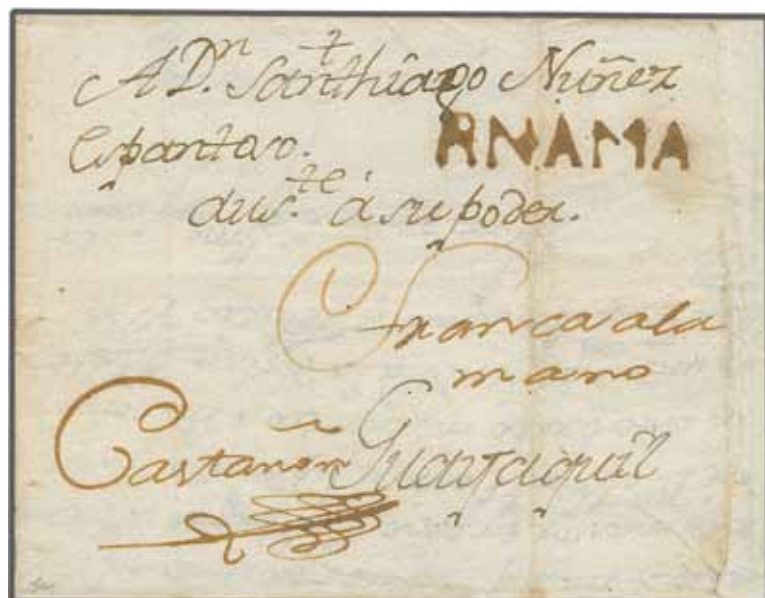 A D.n Santhiago Nuñez
Espantoso.
PANAMA
á su poder.
Franca a la
mano
Castañon Guayaquil